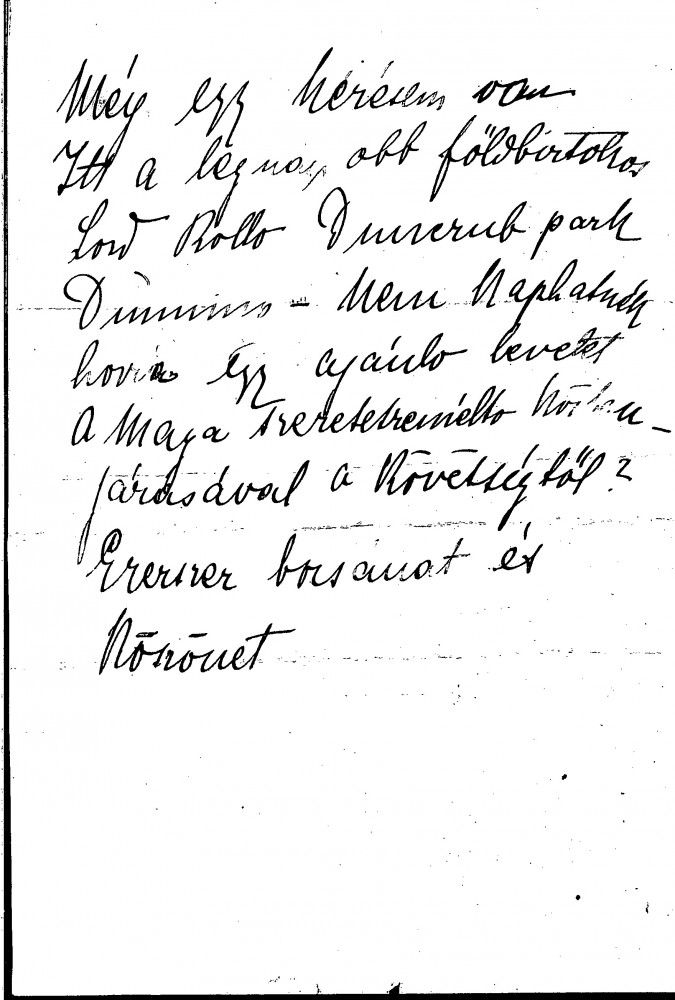 Még egy kérésem van
Itt a legnagyobb földbirtokos
Lord Rollo Duncrub park
Dunning – Nem kaphatnék
hozzá egy ajánló levelet
a Maga szeretetreméltó közben-
járásával a Követségtől?
Ezerszer bocsánat és
Köszönet